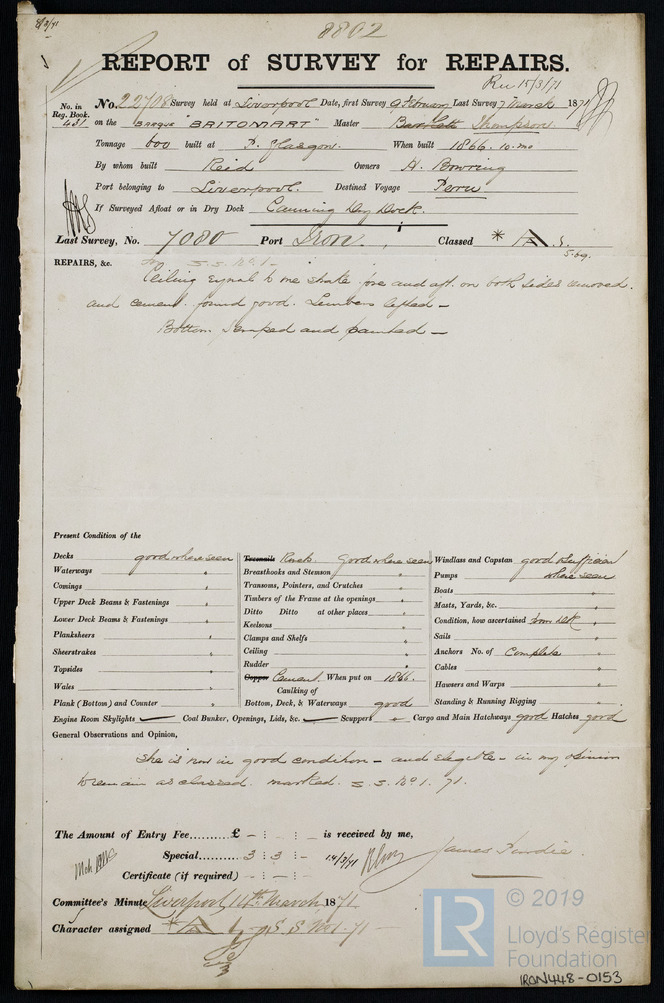 8/3/71
8802
REPORT of SURVEY for REPAIRS.
Rec 15/3/71
No. in Reg. Book. 431
No. 22708 Survey held at Liverpool Date, first Survey 9 February Last Survey 7 March 1871
on the Barque "BRITOMART" Master Bartlett Thompson
Tonnage 600 built at P. Glasgow. When built 1866. 10. mo
By whom built Reid Owners H. Bowring
Port belonging to Liverpool. Destined Voyage Peru
If Surveyed Afloat or in Dry Dock Canning Dry Dock.
Last Survey, No. 7080 Port Iron. Classed * A
5.69.
REPAIRS, &c. for S.S. No. 1 -
Ceiling equal to one strake fore and aft on both sides removed.
and cement found good. Limbers lifted —
Bottom scraped and painted —
Present Condition of the
Decks good where seen
Waterways "
Comings "
Upper Deck Beams & Fastenings "
Lower Deck Beams & Fastenings "
Planksheers "
Sheerstrakes "
Topsides "
Wales "
Plank (Bottom) and Counter "
Treenails Rivets. Good where seen
Breasthooks and Stemson "
Transoms, Pointers, and Crutches "
Timbers of the Frame at the openings "
Ditto Ditto at other places "
Keelsons "
Clamps and Shelfs "
Ceiling "
Rudder "
Copper Cement. When put on 1866.
Caulking of
Bottom, Deck, & Waterways good
Windlass and Capstan good & sufficient
Pumps where seen
Boats "
Masts, Yards, &c. "
Condition, how ascertained from deck "
Sails "
Anchors No. of Complete "
Cables "
Hawsers and Warps "
Standing & Running Rigging "
Engine Room Skylights — Coal Bunker, Openings, Lids, &c. — Scuppers " Cargo and Main Hatchways good Hatches good
General Observations and Opinion,
She is now in good condition – and eligible – in my opinion
to remain as classed. marked. S.S. No. 1. 71.
The Amount of Entry Fee..........£ - : - : - is received by me,
Special.......... 3 : 3 : - 14/3/71
James Purdie.
Certificate (if required) - : - : -
Committee's Minute Liverpool 14th March 1871.
Character assigned * A S.S. No 1-71 -
LR
© 2019
Lloyd's Register
Foundation
IRON448-0153